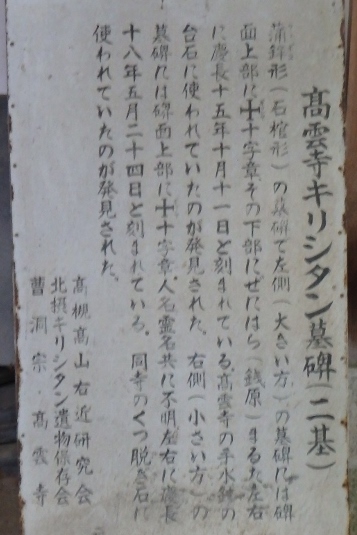 高雲寺キリシタン墓碑(二基)
蒲鉾形(石棺形)の墓碑で左側(大きい方)の墓碑には碑
面上部に十十字章その下部にせにはら(銭原)まるた左右
に慶長十五年十月十一日と刻まれている。高雲寺の手水鉢の
台石に使われていたのが発見された。右側(小さい方)の
墓碑には碑面上部に十十字章人名霊名共に不明左右に慶長
十八年五月二十四日と刻まれている。同寺のくつ脱ぎ石に
使われていたのが発見された。
高槻高山右近研究会
北摂キリシタン遺物保存会
曹洞宗 高雲寺